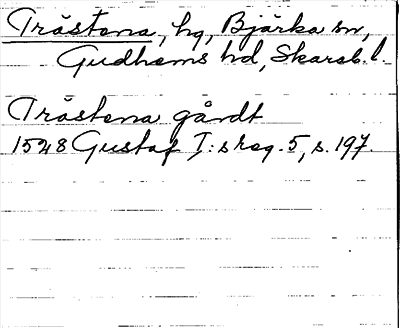 Tråstena, hg, Bjärka sn,
Gudhems hd, Skarab. l.
Tråstena gårdt
1528 Gustaf I:s reg. 5, s. 197.